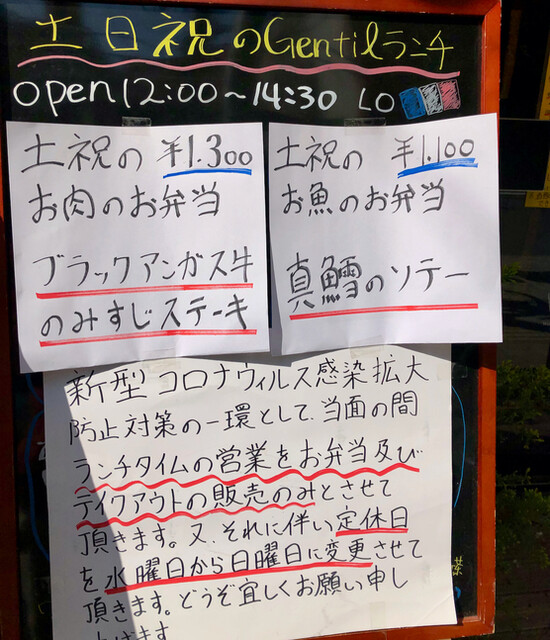 土日祝のGentilランチ
open12:00~14:30 LO
土祝の ¥1.300
お肉のお弁当
ブラックアンガス牛
のみすじステーキ
土祝の ¥1.100
お魚のお弁当
真鱈のソテー
新型コロナウィルス感染拡大
防止対策の一環として、当面の間
ランチタイムの営業をお弁当及び
テイクアウトの販売のみとさせて
頂きます。又、それに伴い定休日
を水曜日から日曜日に変更させて
頂きます。どうぞ宜しくお願い申し
上げます